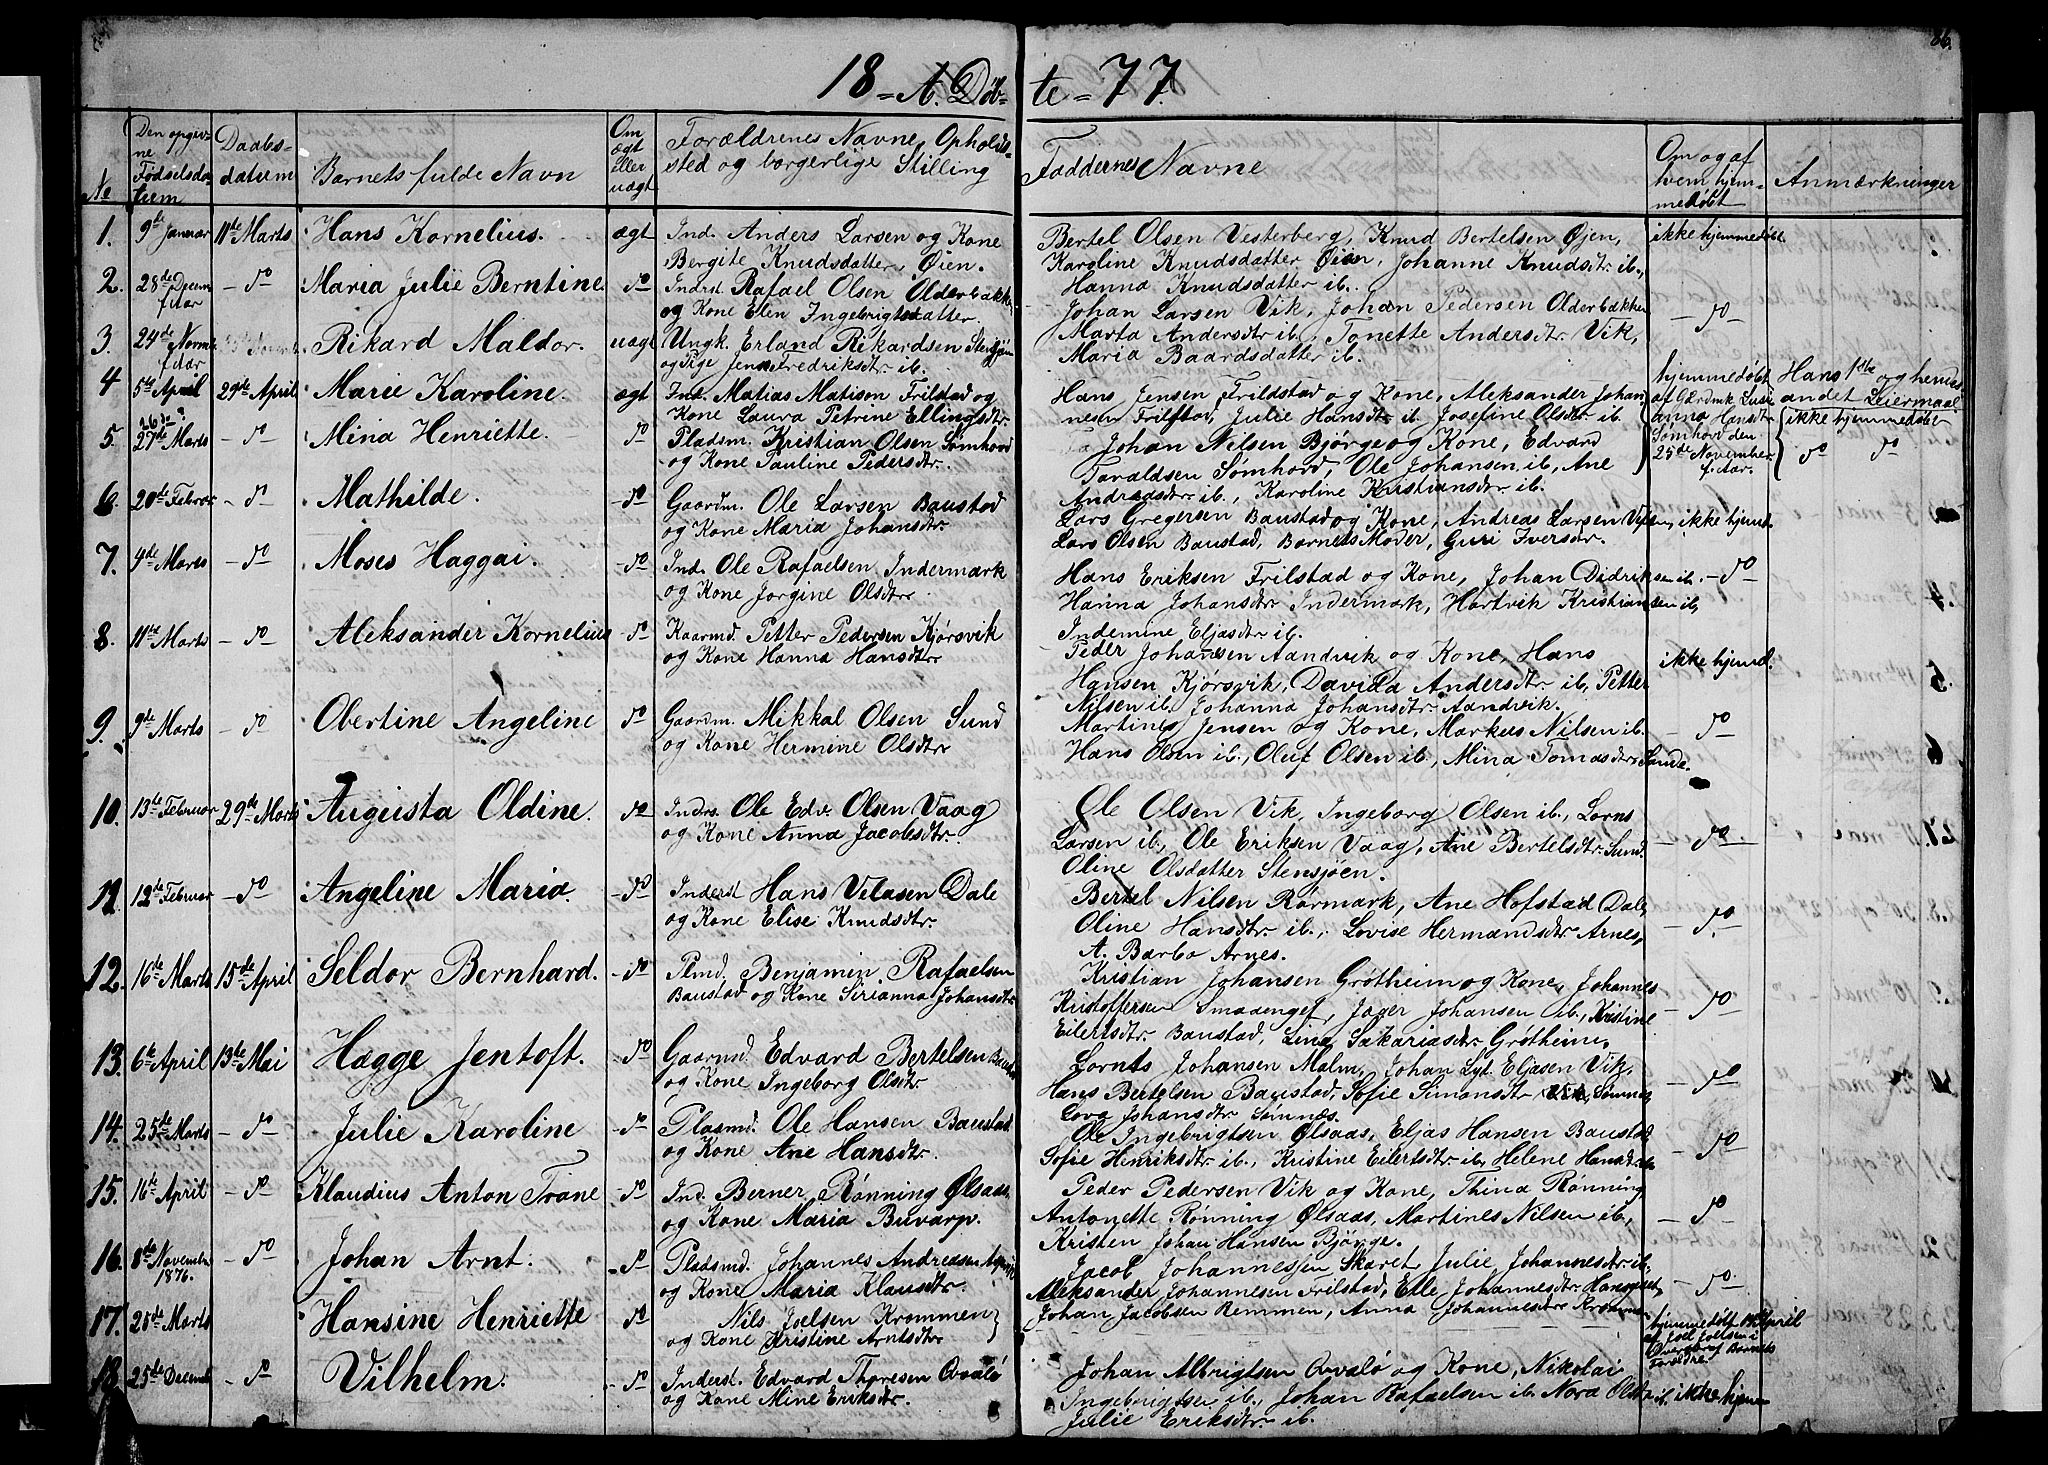 86.
18 = A. Døb= te = 77.
No
Den opgiv-
ne
Fødselsda-
tum
Daabs-
datum
Barnets fulde Navn
Om
ægt
eller
uægt
Forældrenes Navne, Opholds-
sted og borgerlige Stilling
Faddernes Navne
Om og af
hvem hjem-
medøbt
Anmærkninger
1. 9de Januar 11te Marts Hans Kornelius. ægt Ind. Anders Larsen og Kone
Bergite Knudsdatter, Øien.
Bertel Olsen Vesterberg, Knud Bertelsen Øjen,
Karoline Knudsdatter Øien, Johanne Knudsdtr ib.,
Hanna Knudsdatter ib.
ikke hjemmedøbt.
2. 28de Decem f. Aar – do Maria Julie Berntine. do Indrst Rafael Olsen Olderbakke
og Kone Elen Ingebrigtsdatter.
Johan Larsen Vik, Johan Pedersen Olderbakken
Marta Andersdtr ib., Tonette Andersdtr. Vik,
Maria Baardsdatter ib.
– do –
3. 24de Novemb f. Aar Rikard Maldor. uægt Ungk. Erland Rikardsen
og Pige Fredriksdtr. ib.
4 5te April 29de April Marie Karoline. ægt Ind. Matias Matisen Frilstad og
Kone Laura Petrine Ellingsdtr.
Hans Jensen Frildstad og Kone, Aleksander Johan
nesen Frilstad, Julie Hansdtr ib Josefine Olsdtr ib.
hjemmedøbt
af Gaardmk
anna Hansdtr
Sømhovd den
25de November
f. Aar.
Hans 1ste og hendes
andet Leiermaal
ikke hjemmedøbt
do do
5. 27de Marts – do Mina Henriette. do Pladsm. Kristian Olsen Sømhovd
og Kone Pauline Pedersdtr.
Johan Nilsen Bjørge og Kone, Edvard
Toraldsen Sømhovd, Ole Johansen ib, Ane
Andreasdtr ib., Karoline Kristiansdtr. ib.
6. 20de Februar – do Mathilde. – do Gaardm. Ole Larsen Baustad
og Kone Maria Johansdtr.
Lars Gregersen Baustad og Kone, Andreas Larsen
Lars Olsen Baustad, Barnets Moder, Guri Iversdtr.
ikke hjemd.
7. 4de Marts – do – Moses Haggai. – do Ind. Ole Rafaelsen Indermark
og Kone Jørgine Olsdtr.
Hans Eriksen Frilstad og Kone, Johan Didriksen ib. – do
Hanna Johansdtr. Indermark, Hartvik Kristiansen ib,
Indemine Eljasdtr ib.
8. 11te Marts – do Aleksander Kornelius – do Gaarmd. Petter Pedersen Kjørsvik
og Kone Hanna Hansdtr
Peder Johansen Aandvik og Kone, Hans
Hansen Kjørsvik, Davida Andersdtr. ib, Petter
Nilsen ib, Johanna Johansdtr Aandvik.
ikke hjemd.
9. 9de Marts – do Obertine Angeline do Gaardm. Mikkal Olsen Sund
og Kone Hermine Olsdtr.
Martines Jensen og Kone, Markus Nilsen ib.
Hans Olsen ib., Oluf Olsen ib., Mina Tomasdtr.
– do
10. 13de Februar 29de Marts Augusta Oldine. do Indrs. Ole Edv. Olsen Vaag
og Kone Anna Jacobsdtr.
Ole Olsen Vik, Ingeborg Olsen ib., Lorns
Larsen ib., Ole Eriksen Vaag, Ane Bertelsdtr. Sund.
Oline Olsdatter Stensjøen.
– do –
11. 12te Februar – do Angeline Maria. – do Inderst Hans Velasen Dale
og Kone Elise Knudsdtr.
Bertel Nilsen Rørmark, Ane Hofstad Dale,
Oline Hansdtr ib., Lovise Hermandsdtr Arnes,
A. Barbo Arnes.
– do
12. 16de Marts 15de April Seldor Bernhard. – do Plmd. Benjamin Rafaelsen
Baustad og Kone Sirianna Johansdtr
Kristian Johansen Grøtheim og Kone, Johannes
Kristoffersen Smaaenget, Johansen ib., Kristine
Eilertsdtr. Baustad, Lina Sakariasdtr Grøtheim.
– do
13. 6te April 13de Mai Hagge Jentoft. – do Gaarmd. Edvard Bertelsen
og Kone Ingeborg Olsdtr.
Lornts Johansen Malm, Johan Eljasen Vik,
Hans Bertelsen Baustad, Sofie Simonsdtr
Johansdtr Sømnæs.
– do
14. 25de Marts – do Julie Karoline – do Plasmd. Ole Hansen Baustad
og Kone Ane Hansdtr.
Ole Ingebrigtsen Ølsaas, Eljas Hansen Baustad
Sofie Henriksdtr ib., Kristine Eilertsdtr ib, Helene Hansdtr
– do
15. 16de April – do Klaudius Anton Trane – do Ind. Berner Rønning Ølsaas
og Kone Maria Buvarp.
Peder Pedersen Vik og Kone, Thina Rønning
Antonette Rønning Ølsaas, Martines Nilsen ib.,
Kristen Johan Hansen Bjørge.
– do
16. 8de November 1876. – do Johan Arnt. – do Pladsmd. Johannes Andreasen
og Kone Maria Klausdtr.
Jacob Johannessen Skaret, Julie Johannesdtr ib.,
Aleksander Johannesen Frilstad, Elle Johannesdtr
Johan Jacobsen Remmen, Anna Johannesdtr
– do
17. 25de Marts Hansine Henriette do Nils Joelsen Krommen
og Kone Kristine Arntsdtr
hjemmedøbt April
af Joel Joelsen i
Barnets
Forældre
18. 25de Decemb – do Vilhelm. – do Inderst. Edvard Thoresen Qvalø
og Kone Mine Eriksdtr.
Johan Albrigtsen Qvalø og Kone, Nikolai
Ingebrigtsen ib., Johan Rafaelsen ib. Nora
Julie Eriksdtr. ib.
ikke hjem